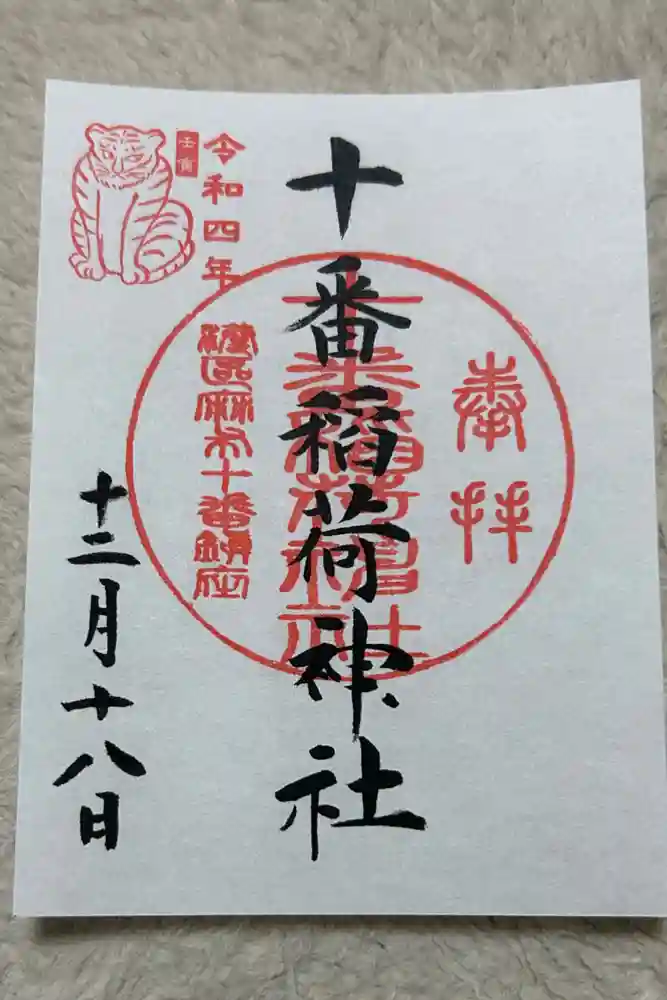 奉拝
十番稲荷神社
港区麻布十番鎮座
令和四年
壬寅
十二月十八日